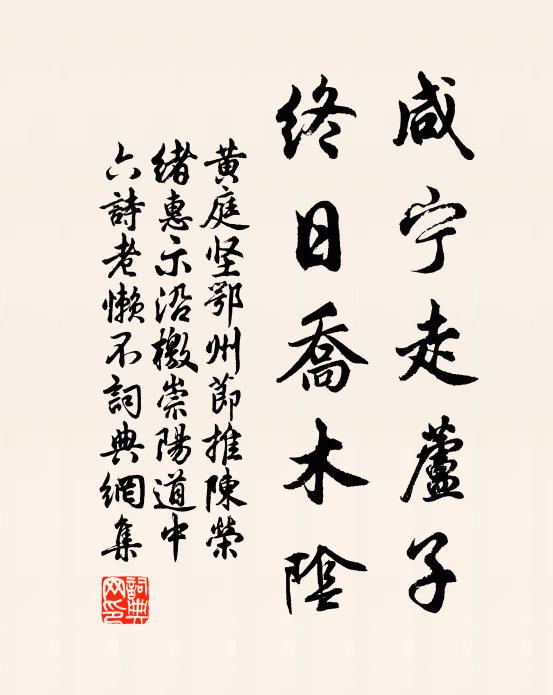 咸宁走蘆子
終日喬木陰
黄庭坚鄂州節推陳榮
緒惠示沿檄崇陽道中
六詩老懒不詞典網集
詞典网印